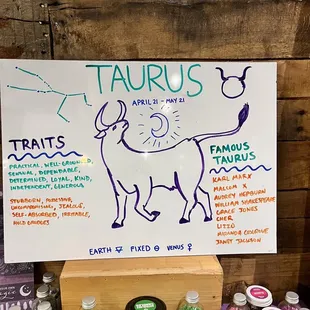 TAURUS
APRIL 21 - MAY 21
TRAITS
PRACTICAL, WELL-GROUNDED,
SENSUAL, DEPENDABLE,
DETERMINED, LOYAL, KIND,
INDEPENDENT, GENEROUS
STUBBORN, POSSESSIVE,
UNCOMPROMISING, JEALOUS,
SELF-ABSORBED, IRRITABLE,
HOLD GRUDGES
FAMOUS
TAURUS
KARL MARX
MALCOM X
AUDREY HEPBURN
WILLIAM SHAKESPEARE
GRACE JONES
CHER
LIZZO
MIRANDA COSGROVE
JANET JACKSON
EARTH FIXED VENUS